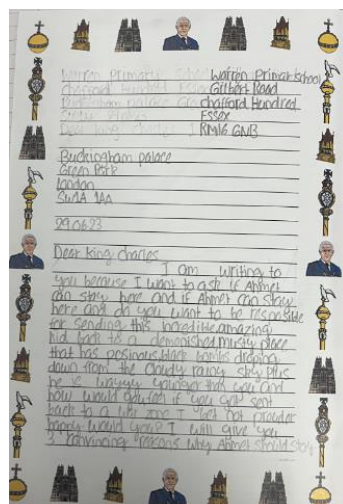 Warren Primary School Warren Primary School
Chafford Hundred Essex Gilbert Road
Buckingham palace Gre Chafford Hundred
Essex
Dear king RM16 6NB
Buckingham palace
Green Park
London
SW1A 1AA
29.06.23
Dear king charles
I am writing to
you because I want to ask if Ahmet
can stay here and if Ahmet can stay
here and do you want to be responsible
for sending this incredible,amazing
kid back to a demonished,musty place
that has posinous,black bombs droping
down from the cloudy rainy sky plus
he is wayyy younger than you and
how would you feel if you got sent
back to a war zone I bet not prouder
happy would you? I will give you
3 convincing reasons why Ahmet should stay